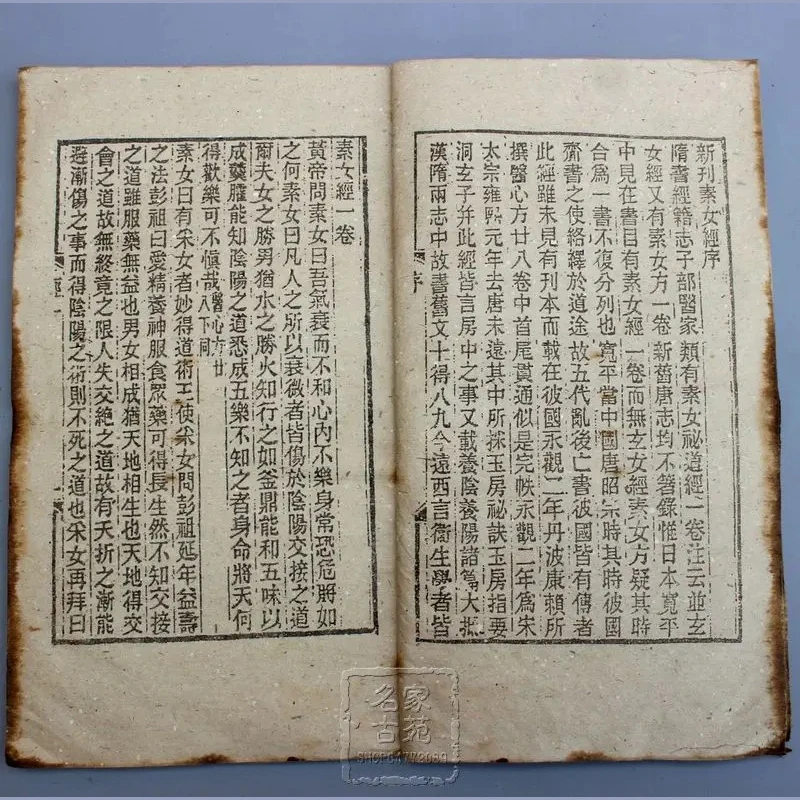 新刊素女經序
隋書經籍志子部醫家類有素女祕道經一卷注云並玄
女經又有素女方一卷新舊唐志均不著錄惟日本寬平
中見在書目有素女經一卷而無玄女經素女方疑其時
合爲一書不復分列也寬平當中國唐昭宗時其時彼國
齎書之使絡繹於道途故五代亂後亡書彼國皆有傳者
此經雖未見有刊本而載在彼國永觀二年丹波康賴所
撰醫心方廿八卷中首尾貫通似是完帙永觀二年爲宋
太宗雍熙元年去唐未遠其中所採玉房祕訣玉房指要
洞玄子并此經皆言房中之事又載養陰養陽諸篇大抵
漢隋兩志中故書舊文十得八九今遠西言衞生學者皆
序
素女經一卷
黃帝問素女曰吾氣衰而不和心內不樂身常恐危將如
之何素女曰凡人之所以衰微者皆傷於陰陽交接之道
爾夫女之勝男猶水之勝火知行之如釜鼎能和五味以
成羹臛能知陰陽之道悉成五樂不知之者身命將夭何
得歡樂可不愼哉醫心方廿八下同
素女曰有采女者妙得道術王使采女問彭祖延年益壽
之法彭祖曰愛精養神服食眾藥可得長生然不知交接
之道雖服藥無益也男女相成猶天地相生也天地得交
會之道故無終竟之限人失交絶之道故有夭折之漸能
避漸傷之事而得陰陽之術則不死之道也采女再拜曰
經一
名家
古苑